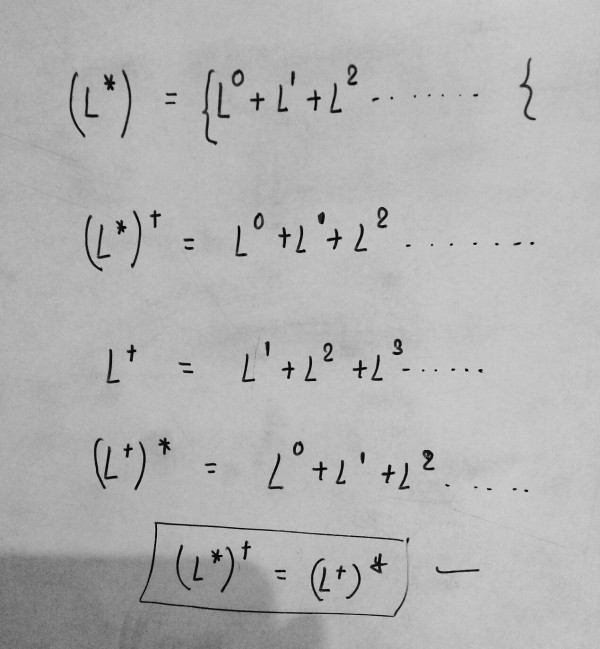 (L*) = {L⁰ + L¹ + L² - . . . . . . . . {
(L*)⁺ = L⁰ + L¹ + L² . . . . . . . .
L⁺ = L¹ + L² + L³ - . . . . . .
(L⁺)* = L⁰ + L¹ + L² . . . . .
(L*)⁺ = (L⁺)* —